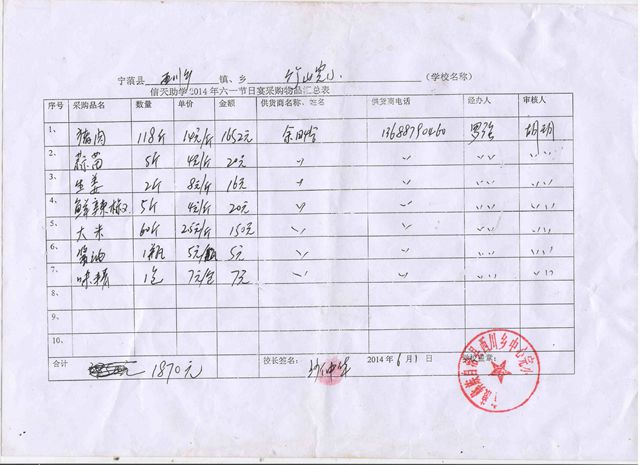 宁蒗县 西川乡 镇、乡 竹山完小 (学校名称)
信天助学2014年六一节日宴采购物品汇总表
序号 采购品名 数量 单价 金额 供货商名称、姓名 供货商电话 经办人 审核人
1、 猪肉 118斤 14元/斤 1652元 13688790460 罗强 胡
2、 蒜苗 5斤 4元/斤 20元 〃 〃 〃〃 〃〃
3、 生姜 2斤 8元/斤 16元 〃 〃 〃〃 〃〃
4、 鲜辣椒 5斤 4元/斤 20元 〃 〃 〃〃 〃〃
5、 大米 60斤 2.5元/斤 150元 〃 〃 〃〃 〃〃
6、 酱油 1瓶 5元/瓶 5元 〃 〃 〃〃 〃〃
7、 味精 1包 7元/包 7元 〃 〃 〃〃 〃〃
8、
9、
10、
合计 1870元 校长签名: 2014年6月1日
西川乡中心完小